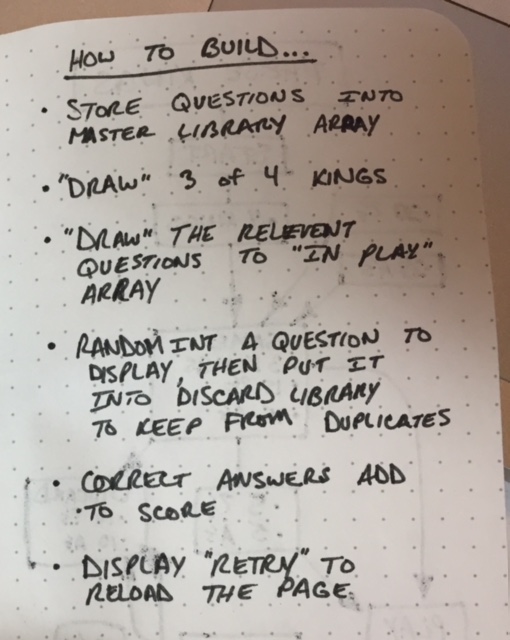 HOW TO BUILD...
• STORE QUESTIONS INTO
MASTER LIBRARY ARRAY
• "DRAW" 3 of 4 KINGS
• "DRAW" THE RELEVENT
QUESTIONS TO "IN PLAY"
ARRAY
• RANDOMINT A QUESTION TO
DISPLAY, THEN PUT IT
INTO DISCARD LIBRARY
TO KEEP FROM DUPLICATES
• CORRECT ANSWERS ADD
TO SCORE
• DISPLAY "RETRY" TO
RELOAD THE PAGE.